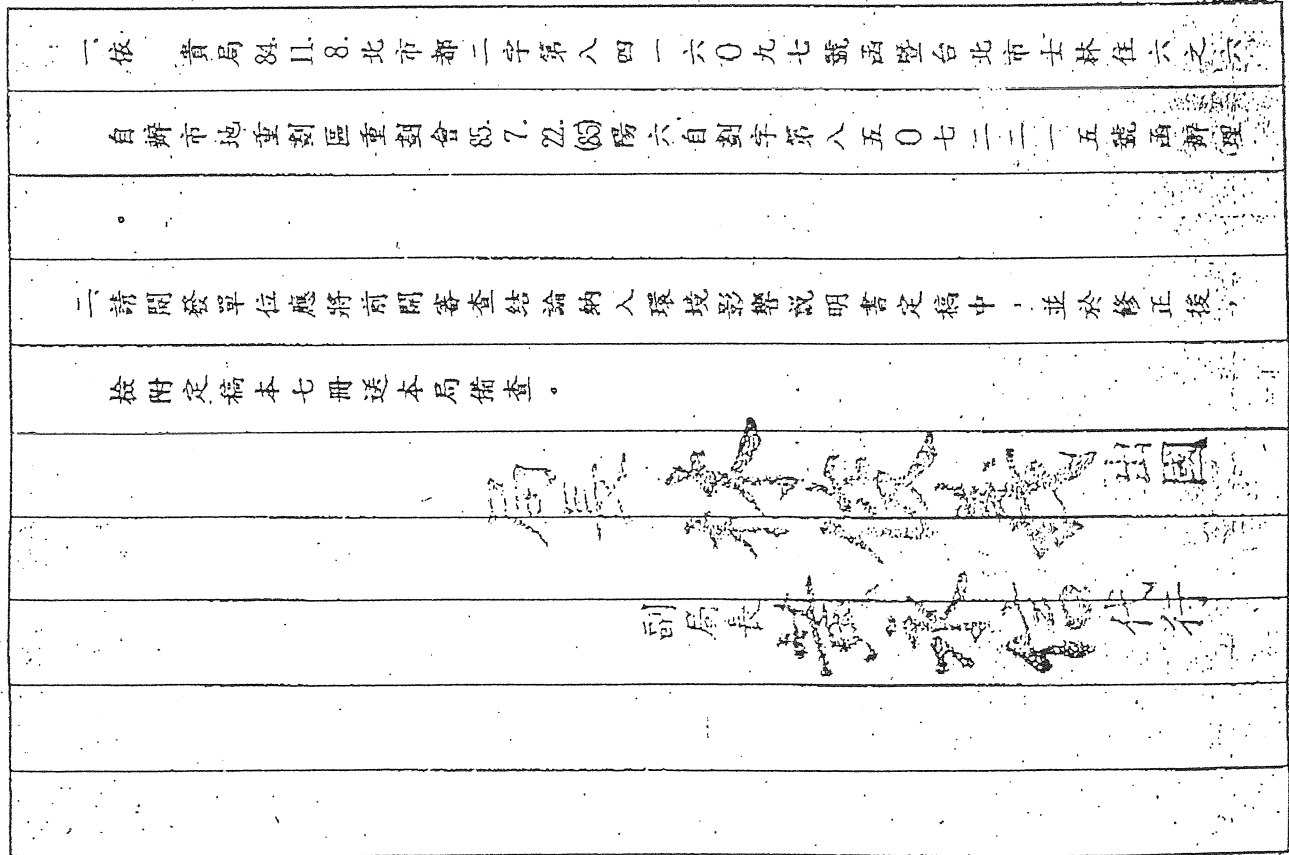 一、依　貴局84.11.8.北市都二字第八四一六〇九七號函暨台北市士林住六之六
自辦市地重劃區重劃會85.7.22.(85)陽六自劃字第八五〇七二二一五號函辦理
。
二、請開發單位應將前開審查結論納入環境影響說明書定稿中，並於修正後，
檢附定稿本七冊送本局備查。
局長 出國
副局長 代行